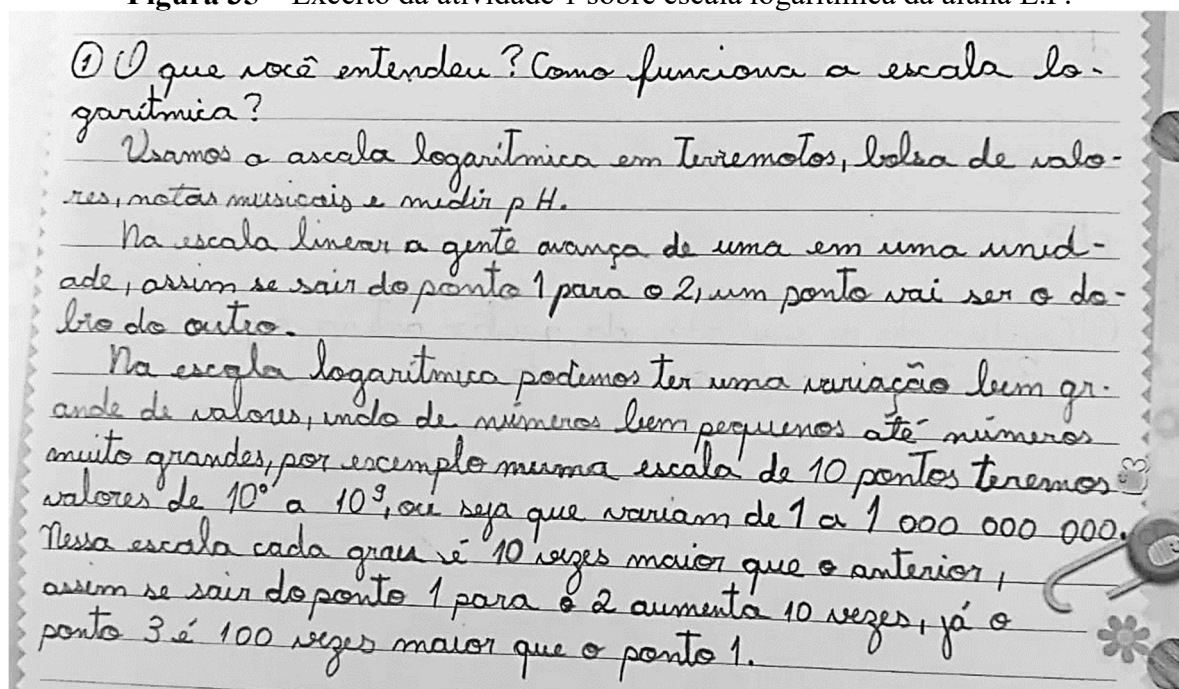 Figura 35 – Excerto da atividade 1 sobre escala logarítmica da aluna E.P.
① O que você entendeu? Como funciona a escala lo-
garítmica?
Usamos a ascala logarítmica em Terremotos, bolsa de valo-
res, notas musicais e medir pH.
Na escala linear a gente avança de uma em uma unid-
ade, assim se sair do ponto 1 para o 2, um ponto vai ser o do-
bro do outro.
Na escala logarítmica podemos ter uma variação bem gr-
ande de valores, indo de números bem pequenos até números
muito grandes, por excemplo numa escala de 10 pontos teremos
valores de 10⁰ a 10⁹, ou seja que variam de 1 a 1 000 000 000.
Nessa escala cada grau é 10 vezes maior que o anterior,
assim se sair do ponto 1 para o 2 aumenta 10 vezes, já o
ponto 3 é 100 vezes maior que o ponto 1.